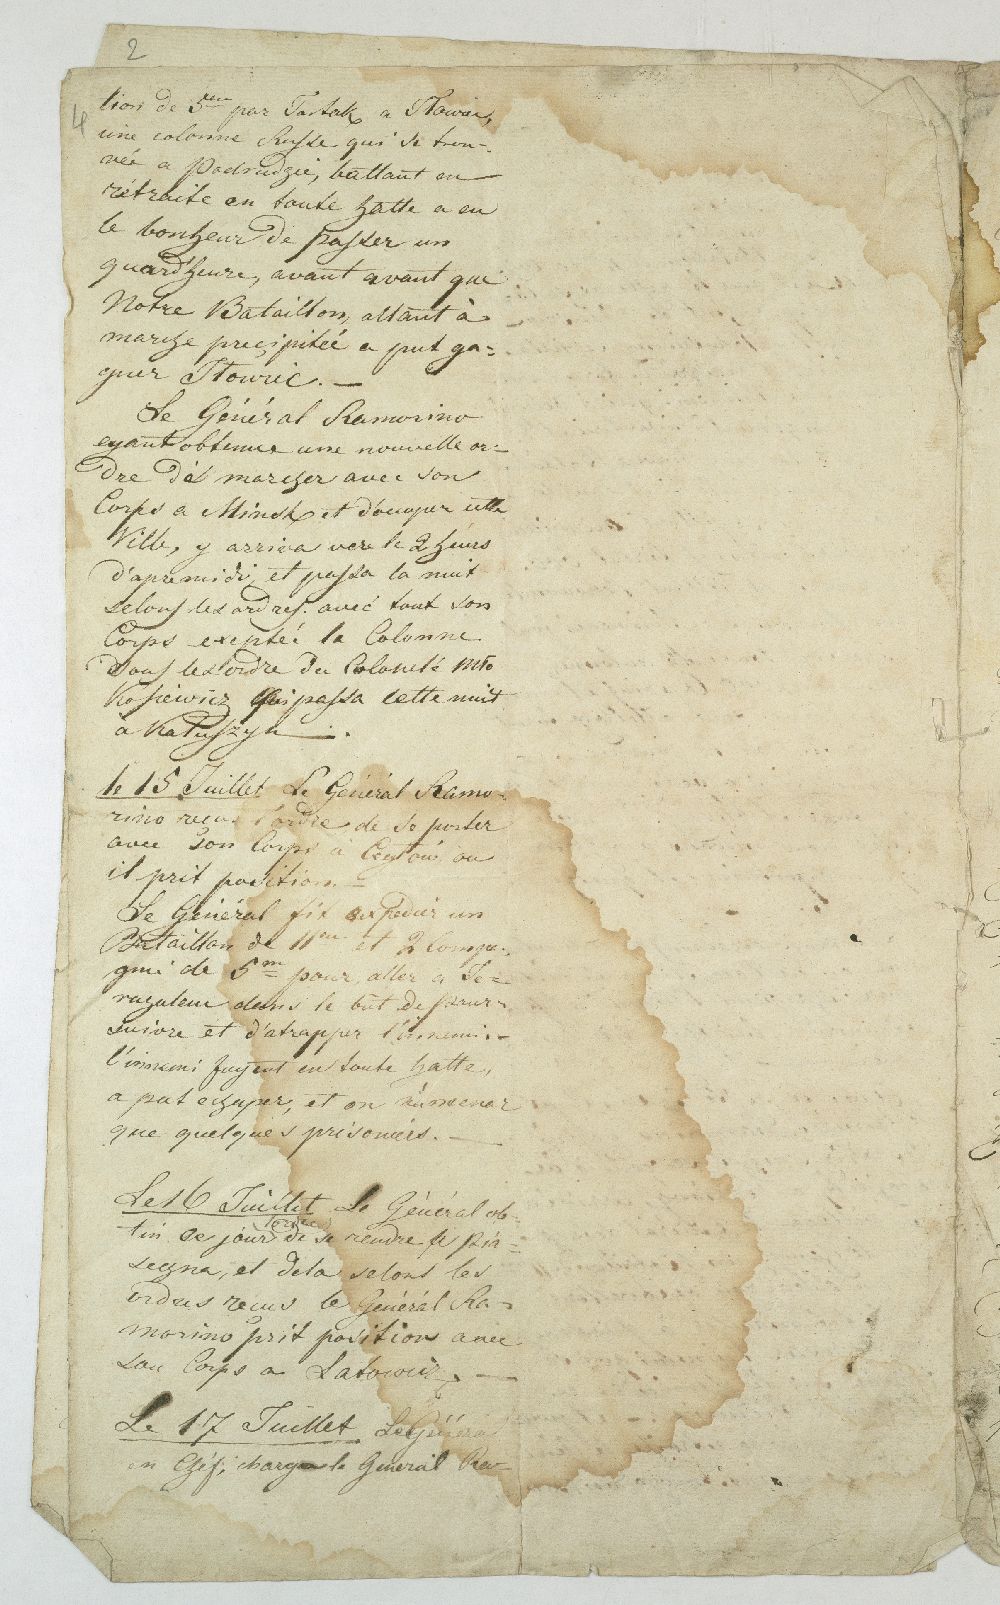 2
4
tion de 5em par Tartak a Stowic,
une colonne Russe qui se trou-
véé a Podrudzie, battant en
rétraite en toute hatte a eu
le bonheur de passer un
quard'heure, avant avant que
Notre Bataillon, allant à
marche precipitéé a put ga=
gner Stowic. —
Le Général Ramorino
eyant obtenue une nouvelle or-
dre dé marcher avec son
Corps a Minsk et d'ocuper cette
Ville, y arriva vers le 2 heurs
d'apremidi, et passa la nuit
selons les ordres. avec tout son
Corps exeptéé la Colonne
sous les ordre du Colonele Mto
Kosiewicz qui passa cette nuit
à Katuszyn — .
le 15 Juillet Le Général Ramo-
rino reçu l'ordre de se porter
avec son Corps à ou
il prit position. —
Le Général fit expedier un
Bataillon de 11em et 2 Compa-
gnie de 5m pour aller a Je=
ruzalem dans le but de pour-
suivre et d'atrapper l'innemi. —
l'innemi fuyent en toute hatte,
a put echaper, et on n'amenar
que quelques prisoniers. —
Le 16 Juillet Le Général ob-
tin ce jour l'ordre de se rendre a Pia-
seczna, et dela selons les
ordres reçus le Général Ra-
morino prit position avec
son Corps a Latowicz. —
Le 17 Juillet Le Général
en Chef, charge le Général Ra-